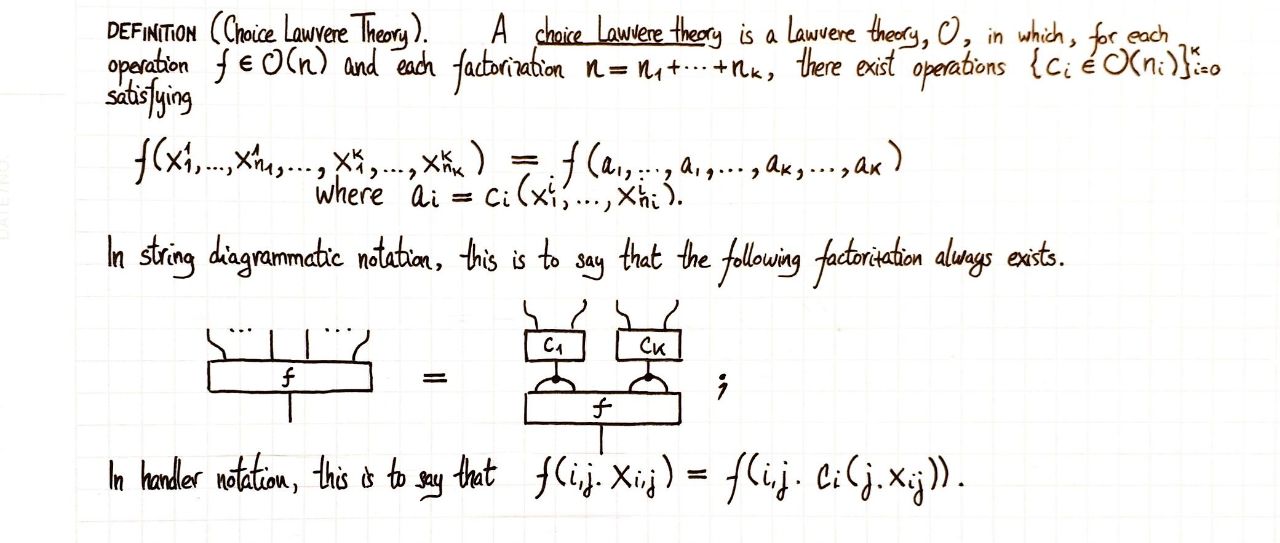 DEFINITION (Choice Lawvere Theory). A choice Lawvere theory is a Lawvere theory, O, in which, for each
operation f ∈ O(n) and each factorization n = n₁ + ⋯ + nₖ, there exist operations {cᵢ ∈ O(nᵢ)}ᵏᵢ₌₀
satisfying
f(x¹₁, ..., x¹ₙ₁, ..., xᵏ₁, ..., xᵏₙₖ) = f(a₁, ..., a₁, ..., aₖ, ..., aₖ)
where aᵢ = cᵢ(xⁱ₁, ..., xⁱₙᵢ).
In string diagrammatic notation, this is to say that the following factorization always exists.
... ...
c₁ cₖ
f = f ;
In handler notation, this is to say that f(i,j. xᵢ,ⱼ) = f(i,j. cᵢ(j. xᵢⱼ)).